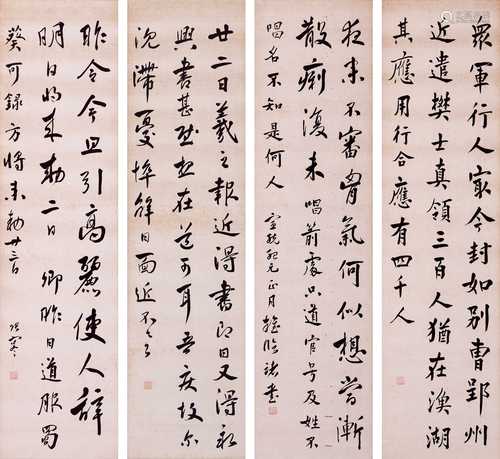 衆軍行人家今封如别曹郢州
近遣樊士真領三百人猶在澳湖
其應用行合應有四千人
夜来不審骨氣何似想當漸
散痢復未唱前處只道官号及姓不
唱名不知是何人
宣統紀元正月
廿二日羲之報近得書即日又得永
興書甚慰想在道可耳吾疾故尔
沈滯憂悴解日面近不
昨令今且引高麗使人辞
明日將来勅二日卿昨日道服蜀
葵可録方將来勅廿三日